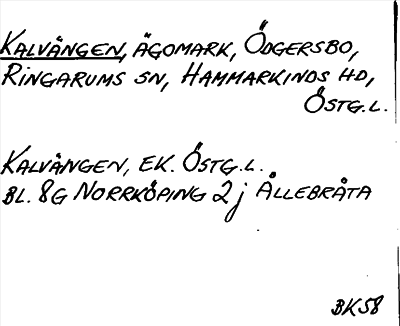 KALVÄNGEN, ÄGOMARK, ÖDGERSBO,
RINGARUMS SN, HAMMARKINDS HD,
ÖSTG.L.
KALVÄNGEN, EK. ÖSTG.L.
BL. 8G NORRKÖPING 2j ÅLLEBRÅTA
BK58